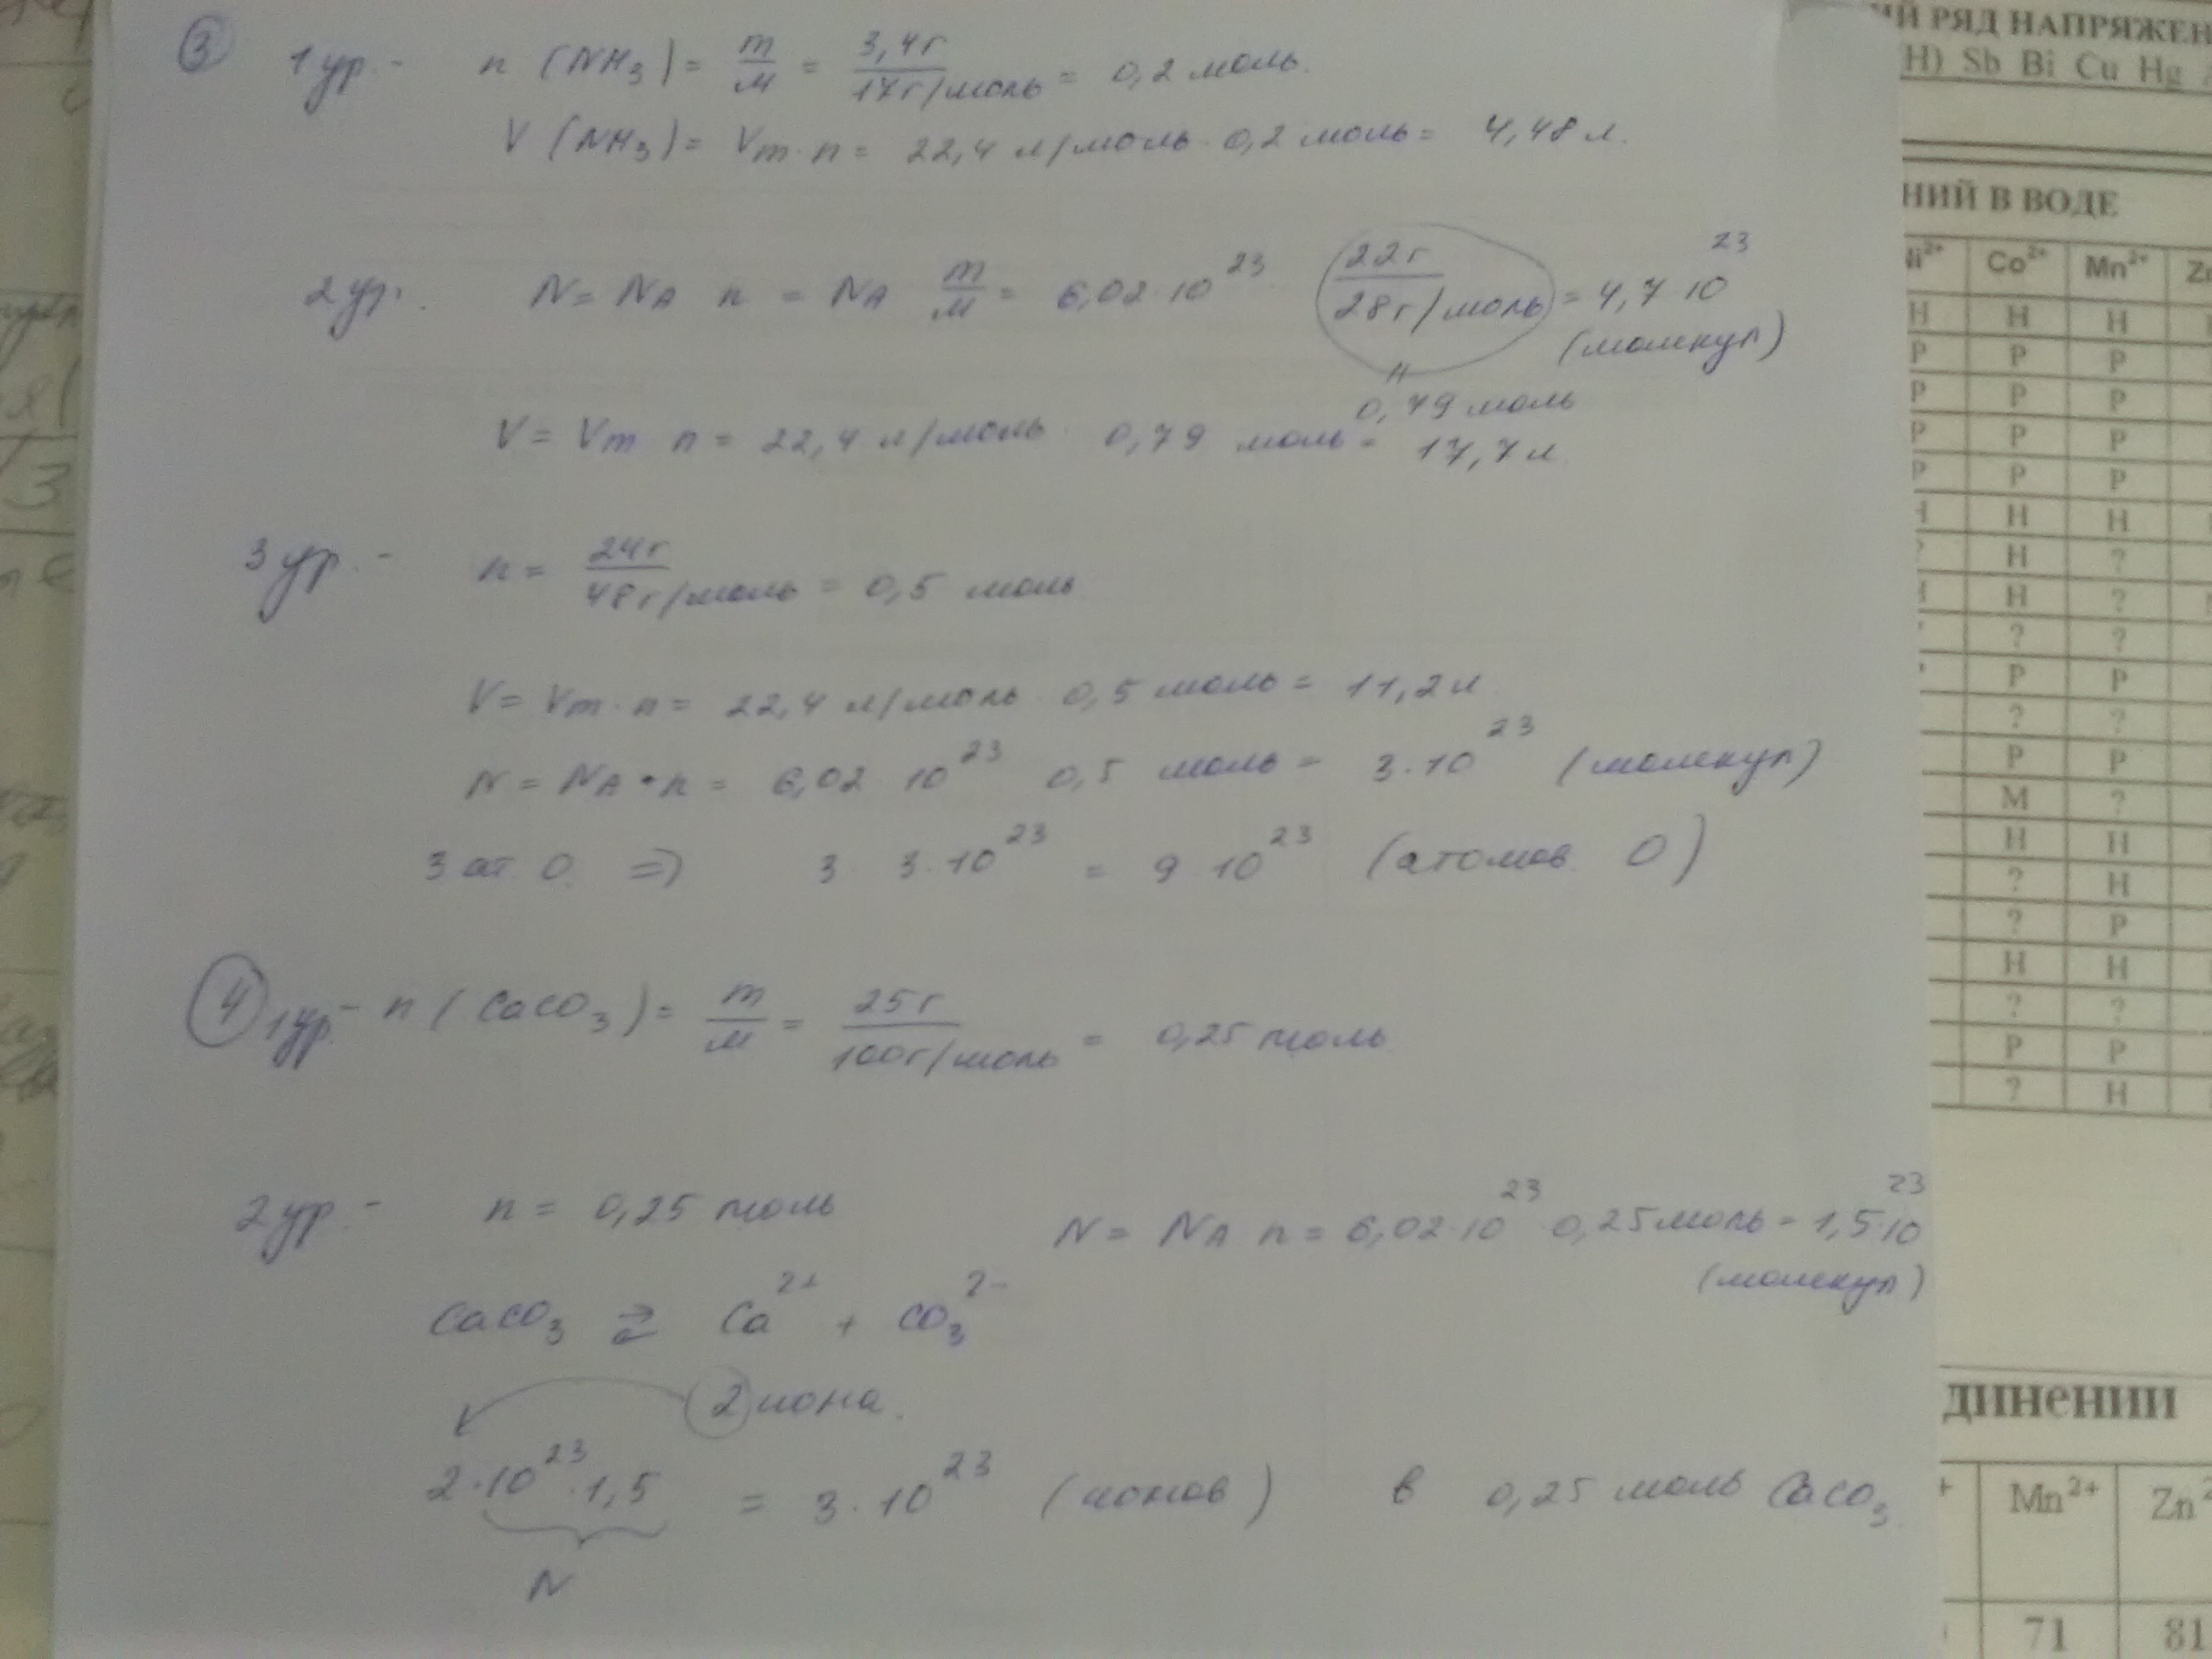 ③ 1 ур. - n (NH₃) = m/м = 3,4 г / 17 г/моль = 0,2 моль.
V (NH₃) = Vm · n = 22,4 л/моль · 0,2 моль = 4,48 л.
2 ур. N = NA n = NA m/м = 6,02 · 10²³ 22 г / 28 г/моль = 4,7 · 10²³
(молекул)
"
0,79 моль
V = Vm n = 22,4 л/моль · 0,79 моль = 17,7 л
3 ур. - n = 24 г / 48 г/моль = 0,5 моль
V = Vm · n = 22,4 л/моль 0,5 моль = 11,2 л
N = NA · n = 6,02 10²³ 0,5 моль = 3 · 10²³ (молекул)
3 ат. O. ⇒ 3 3 · 10²³ = 9 10²³ (атомов O)
④ 1 ур. - n (CaCO₃) = m/м = 25 г / 100 г/моль = 0,25 моль
2 ур. - n = 0,25 моль N = NA n = 6,02 · 10²³ 0,25 моль = 1,5 · 10²³
(молекул)
CaCO₃ ⇄ Ca²⁺ + CO₃²⁻
2 иона.
2 · 10²³ · 1,5 = 3 · 10²³ (ионов) в 0,25 моль CaCO₃
N
РЯД НАПРЯЖЕН
(H) Sb Bi Cu Hg
НИЙ В ВОДЕ
Ni²⁺ Co²⁺ Mn²⁺ Zn
Н Н Н
Р Р Р
Р Р Р
Р Р Р
Р Р Р
Н Н Н
? Н ?
Н Н ?
? ?
Р Р
? ?
Р Р
М ?
Н Н
? Н
? Р
Н Н
? ?
Р Р
? Н
ДИНЕНИИ
+ Mn²⁺ Zn²
71 81